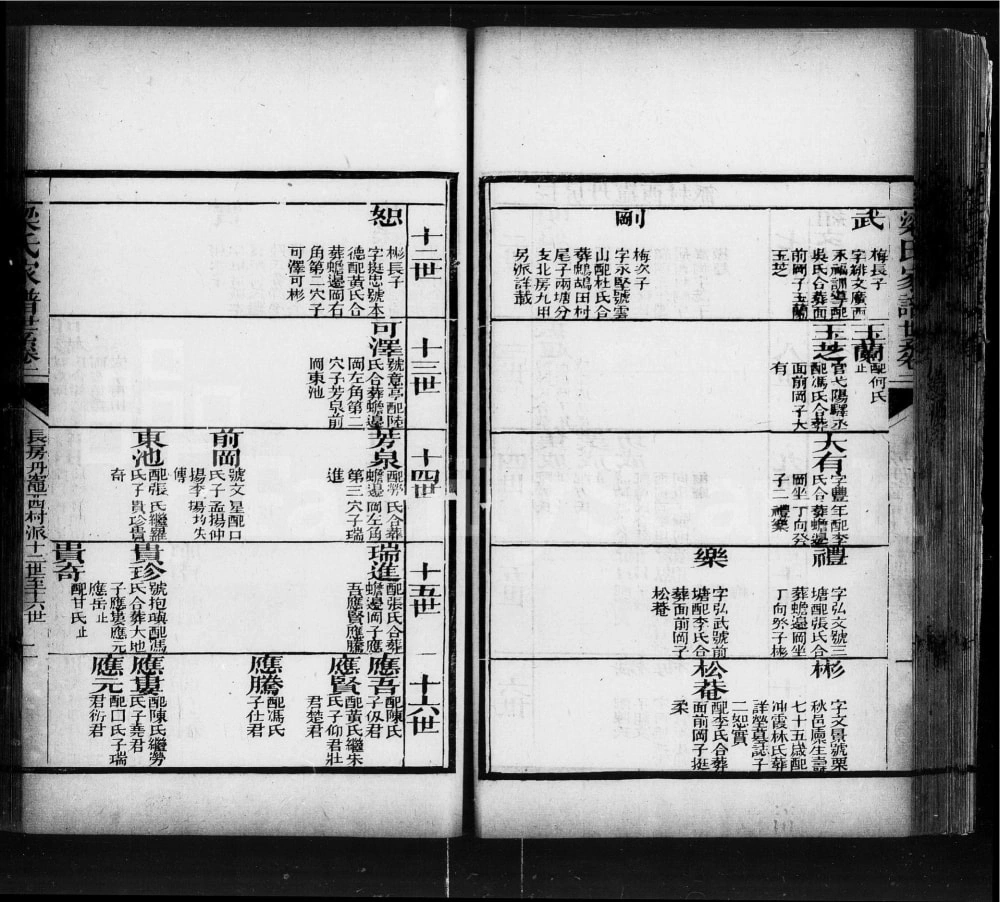 梁氏家譜世系卷二
武
梅長子
字緋文廣西
永福訓導配
吳氏合葬面
前岡子玉蘭
玉芝
剛
梅次子
字永堅號雲
山配杜氏合
葬鷓鴣田村
尾子兩塘分
支北房九甲
另派詳載
玉蘭
配何氏
止
玉芝
官弋陽驛丞
配馮氏合葬
面前岡子大
有
大有
字豐年配李
氏合葬蟾邊
岡坐丁向癸
子二禮樂
禮
字弘文號三
塘配張氏合
葬蟾邊岡坐
丁向癸子彬
樂
字弘武號前
塘配李氏合
葬面前岡子
松菴
彬
字文景號栗
秋邑廩生壽
七十五歲配
冲霞林氏葬
詳塋墓誌子
二恕實
松菴
配李氏合葬
面前岡子挺
柔
十二世
恕
彬長子
字挺忠號本
德配黃氏合
葬蟾邊岡右
角第二穴子
可澤可彬
十三世
可澤
號意亭配陸
氏合葬蟾邊
岡左角第二
穴子芳泉前
岡東池
十四世
芳泉
配鄧氏合葬
蟾邊岡左角
第三穴子瑞
進
前岡
號文星配口
氏子孟揚仲
揚李揚均失
傳
東池
配張氏繼羅
氏子貴珍貴
奇
十五世
瑞進
配張氏合葬
蟾邊岡子應
吾應賢應騰
貴珍
號抱瑱配馮
氏合葬大地
子應異應元
應岳止
貴奇
配甘氏止
十六世
應吾
配陳氏
子伋君
應賢
配黃氏繼朱
氏子仰君壯
君楚君
應騰
配馮氏
子仕君
應異
配陳氏繼勞
氏子堯君
應元
配口氏子瑞
君衍君
梁氏家譜世系卷二
長房丹竈西村派十二世至十六世